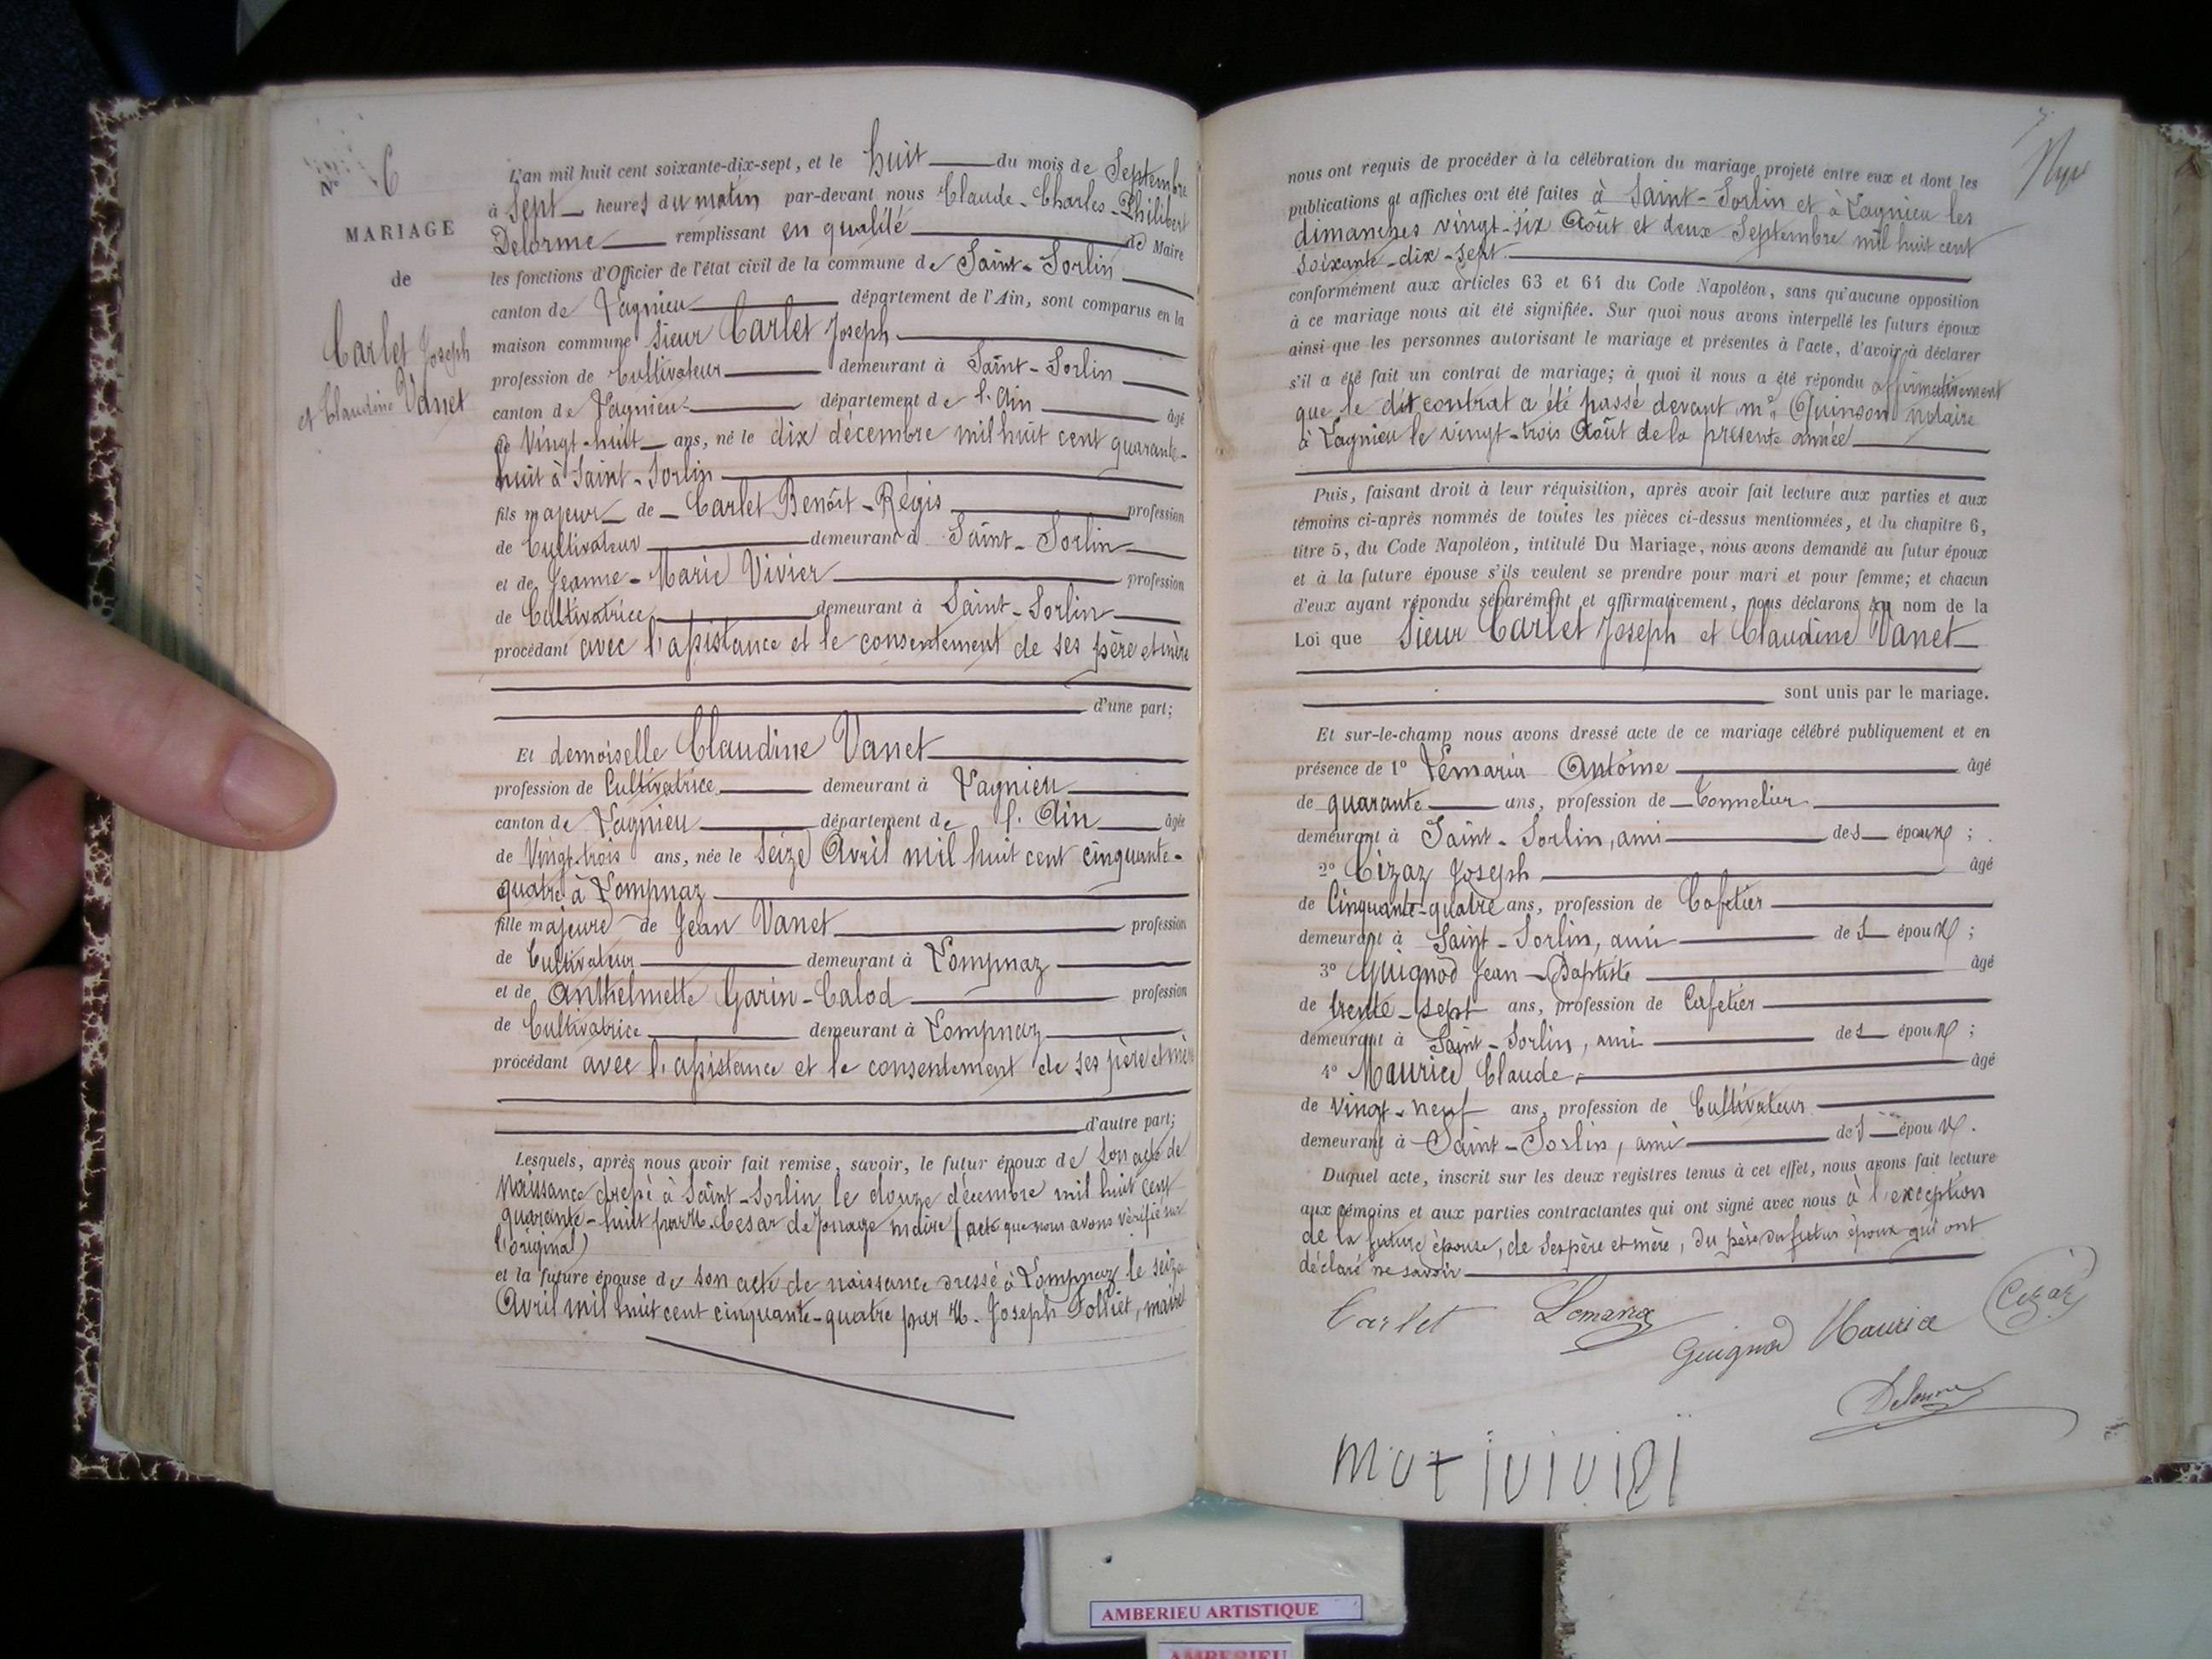 N° 6
MARIAGE
de
Carlet Joseph
et Claudine Vanet
L'an mil huit cent soixante-dix-sept, et le huit du mois de Septembre
à Sept heures du matin par-devant nous Claude-Charles-Philibert
Delorme remplissant en qualité de Maire
les fonctions d'Officier de l'état civil de la commune de Saint-Sorlin
canton de Lagnieu département de l'Ain, sont comparus en la
maison commune Sieur Carlet Joseph
profession de Cultivateur demeurant à Saint-Sorlin
canton de Lagnieu département de l'Ain âgé
de Vingt-huit ans, né le dix décembre mil huit cent quarante-
huit à Saint-Sorlin
fils majeur de Carlet Benoît-Régis profession
de Cultivateur demeurant à Saint-Sorlin
et de Jeanne-Marie Vivier profession
de Cultivatrice demeurant à Saint-Sorlin
procédant avec l'assistance et le consentement de ses père et mère
d'une part;
Et demoiselle Claudine Vanet
profession de Cultivatrice demeurant à Lagnieu
canton de Lagnieu département de l'Ain âgée
de Vingt-trois ans, née le Seize Avril mil huit cent cinquante-
quatre à Lompnaz
fille majeure de Jean Vanet profession
de Cultivateur demeurant à Lompnaz
et de Anthelmette Garin-Calod profession
de Cultivatrice demeurant à Lompnaz
procédant avec l'assistance et le consentement de ses père et mère
d'autre part;
Lesquels, après nous avoir fait remise, savoir, le futur époux de son acte de
naissance dressé à Saint-Sorlin le douze décembre mil huit cent
quarante-huit par M. Cesar de Jonage maire (acte que nous avons vérifié sur
l'original)
et la future épouse de son acte de naissance dressé à Lompnaz le seize
Avril mil huit cent cinquante-quatre par M. Joseph Folliet, maire
nous ont requis de procéder à la célébration du mariage projeté entre eux et dont les
publications et affiches ont été faites à Saint-Sorlin et à Lagnieu les
dimanches vingt-six Août et deux Septembre mil huit cent
soixante-dix-sept.
conformément aux articles 63 et 64 du Code Napoléon, sans qu'aucune opposition
à ce mariage nous ait été signifiée. Sur quoi nous avons interpellé les futurs époux
ainsi que les personnes autorisant le mariage et présentes à l'acte, d'avoir à déclarer
s'il a été fait un contrat de mariage; à quoi il nous a été répondu affirmativement
que le dit contrat a été passé devant me Quinson notaire
à Lagnieu le vingt-trois Août de la présente année
Puis, faisant droit à leur réquisition, après avoir fait lecture aux parties et aux
témoins ci-après nommés de toutes les pièces ci-dessus mentionnées, et du chapitre 6,
titre 5, du Code Napoléon, intitulé Du Mariage, nous avons demandé au futur époux
et à la future épouse s'ils veulent se prendre pour mari et pour femme; et chacun
d'eux ayant répondu séparément et affirmativement, nous déclarons au nom de la
Loi que Sieur Carlet Joseph et Claudine Vanet
sont unis par le mariage.
Et sur-le-champ nous avons dressé acte de ce mariage célébré publiquement et en
présence de 1° Lemaria Antoine âgé
de quarante ans, profession de Tonnelier
demeurant à Saint-Sorlin, ami des époux;
2° Cizaz Joseph âgé
de Cinquante-quatre ans, profession de Cafetier
demeurant à Saint-Sorlin, ami des époux;
3° Guignod Jean-Baptiste âgé
de trente-sept ans, profession de Cafetier
demeurant à Saint-Sorlin, ami des époux;
4° Maurice Claude âgé
de Vingt-neuf ans, profession de Cultivateur
demeurant à Saint-Sorlin, ami des époux.
Duquel acte, inscrit sur les deux registres tenus à cet effet, nous avons fait lecture
aux témoins et aux parties contractantes qui ont signé avec nous à l'exception
de la future épouse, de ses père et mère, du père du futur époux qui ont
déclaré ne savoir
Carlet
Guignod Maurice
Delorme
AMBERIEU ARTISTIQUE
AMBERIEU